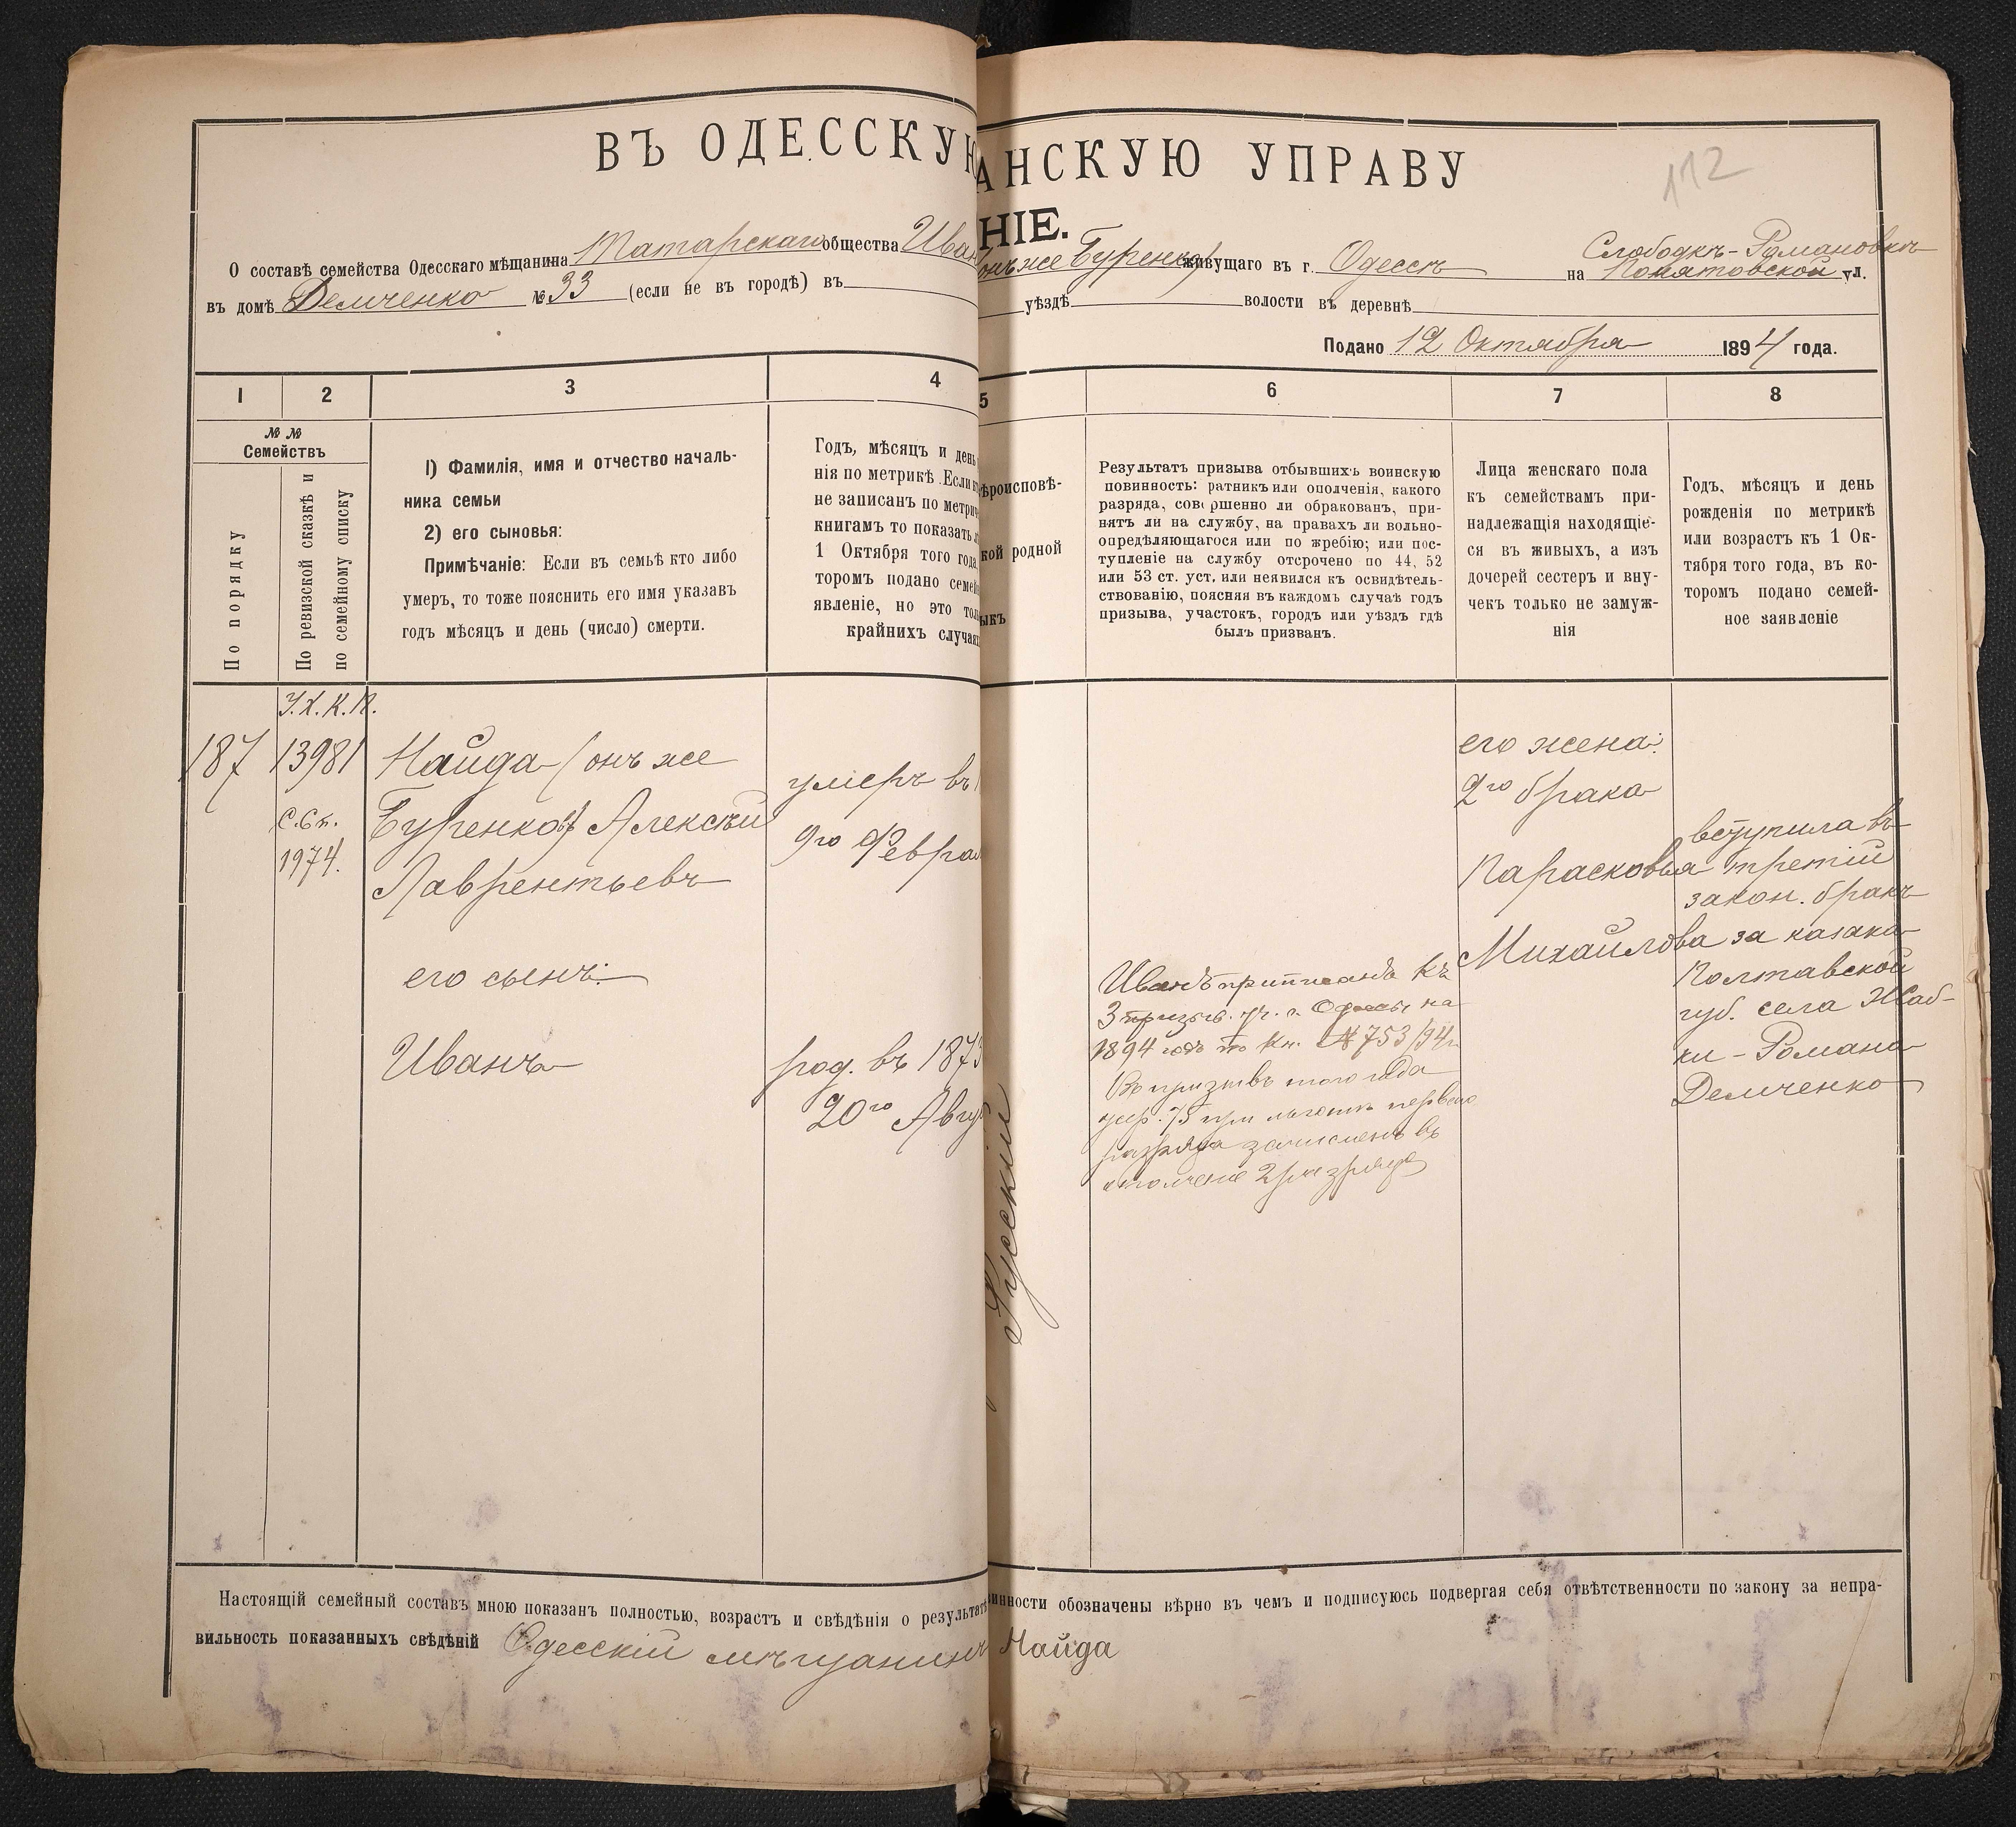 ВЪ ОДЕССКУЮ
АНСКУЮ УПРАВУ
112
НІЕ.
О составѣ семейства Одесскаго мѣщанина Татарскаго общества Иван
онъ же Буренко) живущаго въ г. Одессѣ на Слободкѣ-Романовкѣ Понятовской ул.
въ домѣ Демченко № 33 (если не въ городѣ) въ
уѣздѣ волости въ деревнѣ
Подано 12 Октября 1894 года.
1
2
3
4
5
6
7
8
№ №
Семействъ
По порядку
По ревизской сказкѣ и
по семейному списку
1) Фамилія, имя и отчество началь-
ника семьи
2) его сыновья:
Примѣчаніе: Если въ семьѣ кто либо
умеръ, то тоже пояснить его имя указавъ
годъ мѣсяцъ и день (число) смерти.
Годъ, мѣсяцъ и день
нія по метрикѣ. Если
не записанъ по метри
книгамъ то показать
1 Октября того года
торомъ подано семе
явленіе, но это то
крайнихъ случая
ѣроисповѣ-
кой родной
ыкъ
Результатъ призыва отбывшихъ воинскую
повинность: ратникъ или ополченія, какого
разряда, совершенно ли обракованъ, при-
нятъ ли на службу, на правахъ ли вольно-
опредѣляющагося или по жребію; или пос-
тупленіе на службу отсрочено по 44, 52
или 53 ст. уст. или неявился къ освидѣтель-
ствованію, поясняя въ каждомъ случаѣ годъ
призыва, участокъ, городъ или уѣздъ гдѣ
былъ призванъ.
Лица женскаго пола
къ семействамъ при-
надлежащія находящіе-
ся въ живыхъ, а изъ
дочерей сестеръ и вну-
чекъ только не замуж-
нія
Годъ, мѣсяцъ и день
рожденія по метрикѣ
или возрастъ къ 1 Ок-
тября того года, въ ко-
торомъ подано семей-
ное заявленіе
187
13981
С.Сп.
1974.
Найда (онъ же
Буренко) Алексѣй
Лаврентьевъ
его сынъ:
Иванъ
умеръ въ 1
9го Феврал
род. въ 1873
20го Авгу
Русскій
Иванъ приписанъ къ
3 призыв. уч. г. Одессы на
1894 годъ по кн. № 753/94 г.
Въ призывъ того года
жер. 75 при льготѣ перваго
разряда зачисленъ въ
ополченіе 2 разряда
его жена:
2го брака
Парасковья
Михайлова
вступила въ
третій
закон. бракъ
за казака
Полтавской
губ. села Жаб-
ки - Романа
Демченко
Настоящій семейный составъ мною показанъ полностью, возрастъ и свѣдѣнія о результатѣ
инности обозначены вѣрно въ чемъ и подписуюсь подвергая себя отвѣтственности по закону за непра-
вильность показанныхъ свѣдѣній Одесскій мѣщанинъ Найда